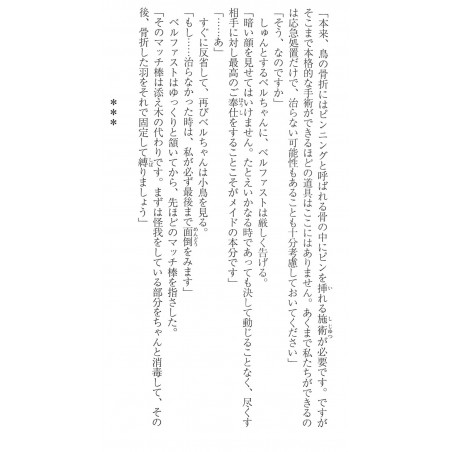 「本来、鳥の骨折にはピンニングと呼ばれる骨の中にピンを挿れる施術が必要です。ですが
そこまで本格的な手術ができるほどの道具はここにはありません。あくまで私たちができるの
は応急処置だけで、治らない可能性もあることも十分考慮しておいてください」
「そう、なのですか」
しゅんとするベルちゃんに、ベルファストは厳しく告げる。
「暗い顔を見せてはいけません。たとえいかなる時であっても決して動じることなく、尽くす
相手に対し最高のご奉仕をすることこそがメイドの本分です」
「……あ」
すぐに反省して、再びベルちゃんは小鳥を見る。
「もし……治らなかった時は、私が必ず最後まで面倒をみます」
ベルファストはゆっくりと頷いてから、先ほどのマッチ棒を指さした。
「そのマッチ棒は添え木の代わりです。まずは怪我をしている部分をちゃんと消毒して、その
後、骨折した羽をそれで固定して縛りましょう」
＊＊＊